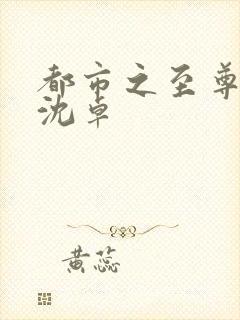 都市之至尊
沈卓
黄蕊